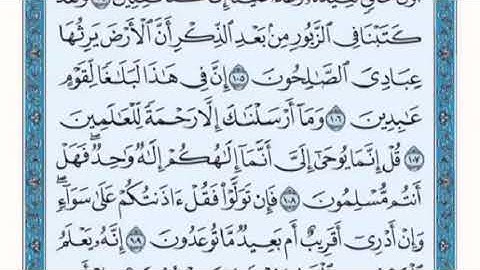 كَتَبْنَا فِي ٱلزَّبُورِ مِنۢ بَعْدِ ٱلذِّكْرِ أَنَّ ٱلْأَرْضَ يَرِثُهَا
عِبَادِيَ ٱلصَّٰلِحُونَ ١٠٥ إِنَّ فِي هَٰذَا لَبَلَٰغًا لِّقَوْمٍ
عَٰبِدِينَ ١٠٦ وَمَآ أَرْسَلْنَٰكَ إِلَّا رَحْمَةً لِّلْعَٰلَمِينَ
١٠٧ قُلْ إِنَّمَا يُوحَىٰٓ إِلَيَّ أَنَّمَآ إِلَٰهُكُمْ إِلَٰهٌ وَٰحِدٌ ۖ فَهَلْ
أَنتُم مُّسْلِمُونَ ١٠٨ فَإِن تَوَلَّوْا۟ فَقُلْ ءَاذَنتُكُمْ عَلَىٰ سَوَآءٍ ۖ
وَإِنْ أَدْرِىٓ أَقَرِيبٌ أَم بَعِيدٌ مَّا تُوعَدُونَ ١٠٩ إِنَّهُۥ يَعْلَمُ